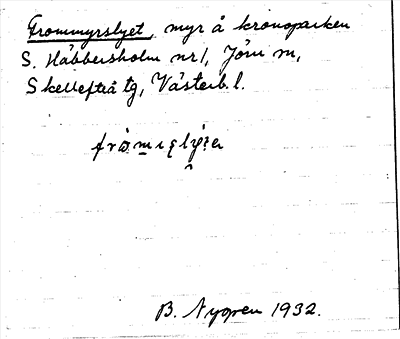 Frommyrslyet, myr å kronoparken
S. Håbbersholm nr 1, Jörn sn,
Skellefteå tg, Västerb. l.
B. Nygren 1932.